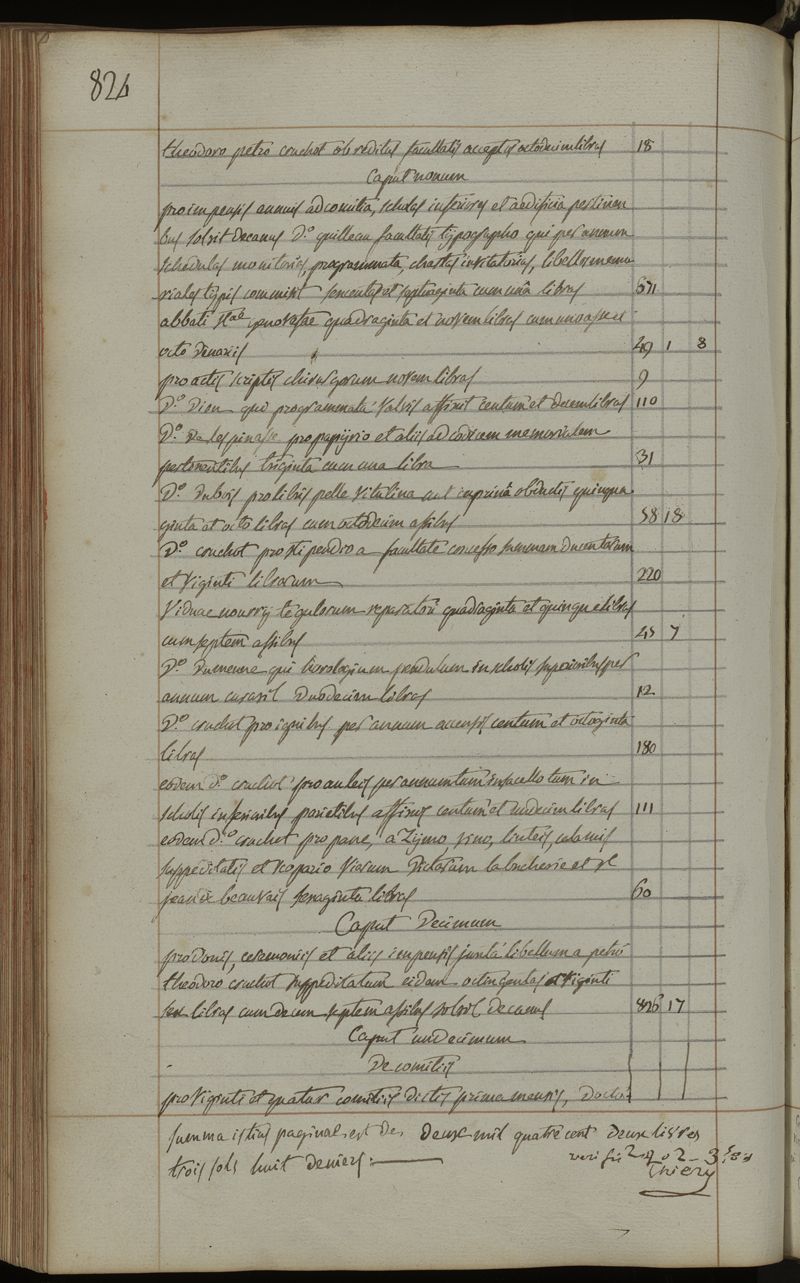 824
theodoro petro cruchot ob reditus facultatis acceptos octodecim libras 18
Caput nonum
pro impensis annuis ad comitia, scholas inferiores et aedificia pertinen
tibus solvit decanus D.o quilleau facultatis typographo qui per annum
schedulas monitorias, programmata, chartas invitatorias, libellos memo
riales typis commisit sexcentas et septuaginta cum una libras 671
abbati stae genovefae quadraginta et novem libras cum uno asse et
octo denariis 49 1 8
pro actis scriptis chirurgorum novem libras 9
D.o Dien qui programmata valvis affixit centum et decem libras 110
D.o Delespinasse pro papyrio et aliis ad codicem memorialem
pertinentibus triginta cum una libra 31
D.o Dubois pro libris pelle vitulina aut caprina obductis quinqua
ginta et octo libras cum octodecim assibus 58 18
D.o cruchot pro stipendio a facultate concesso summam ducentarum
et viginti librarum 220
Viduae nourry tegularum reparatori quadraginta et quinque libras
cum septem assibus 45 7
D.o Dumeune qui horologium pendulum in scholis superioribus per
annum curavit Duodecim libras 12
D.o cruchot pro ignibus per annum accensis centum et octoginta
libras 180
eodem D.o cruchot pro auleis per annum tum in sacello tum in
scholis inferioribus parietibus affixis centum et undecim libras 111
eodem D.o cruchot pro pane, azymo, vino, linteis, calamis
suppeditatis et scopario viarum Dictarum la bucherie et st
jean de beauvais sexaginta libras 60
Caput Decimum
pro donis, ceremoniis et aliis impensis juxta libellum a petro
theodoro cruchot suppeditatum eidem octingentas et viginti
sex libras cum decem septem assibus solvit decanus 826 17
Caput undecimum
De comitiis
pro viginti et quatuor comitiis dictis prima mensis, Docto
summa istius paginae est de Deux mil quatre cent Deux livres
trois sols huit deniers. verifié 2402 - 3s 8d
Thiery